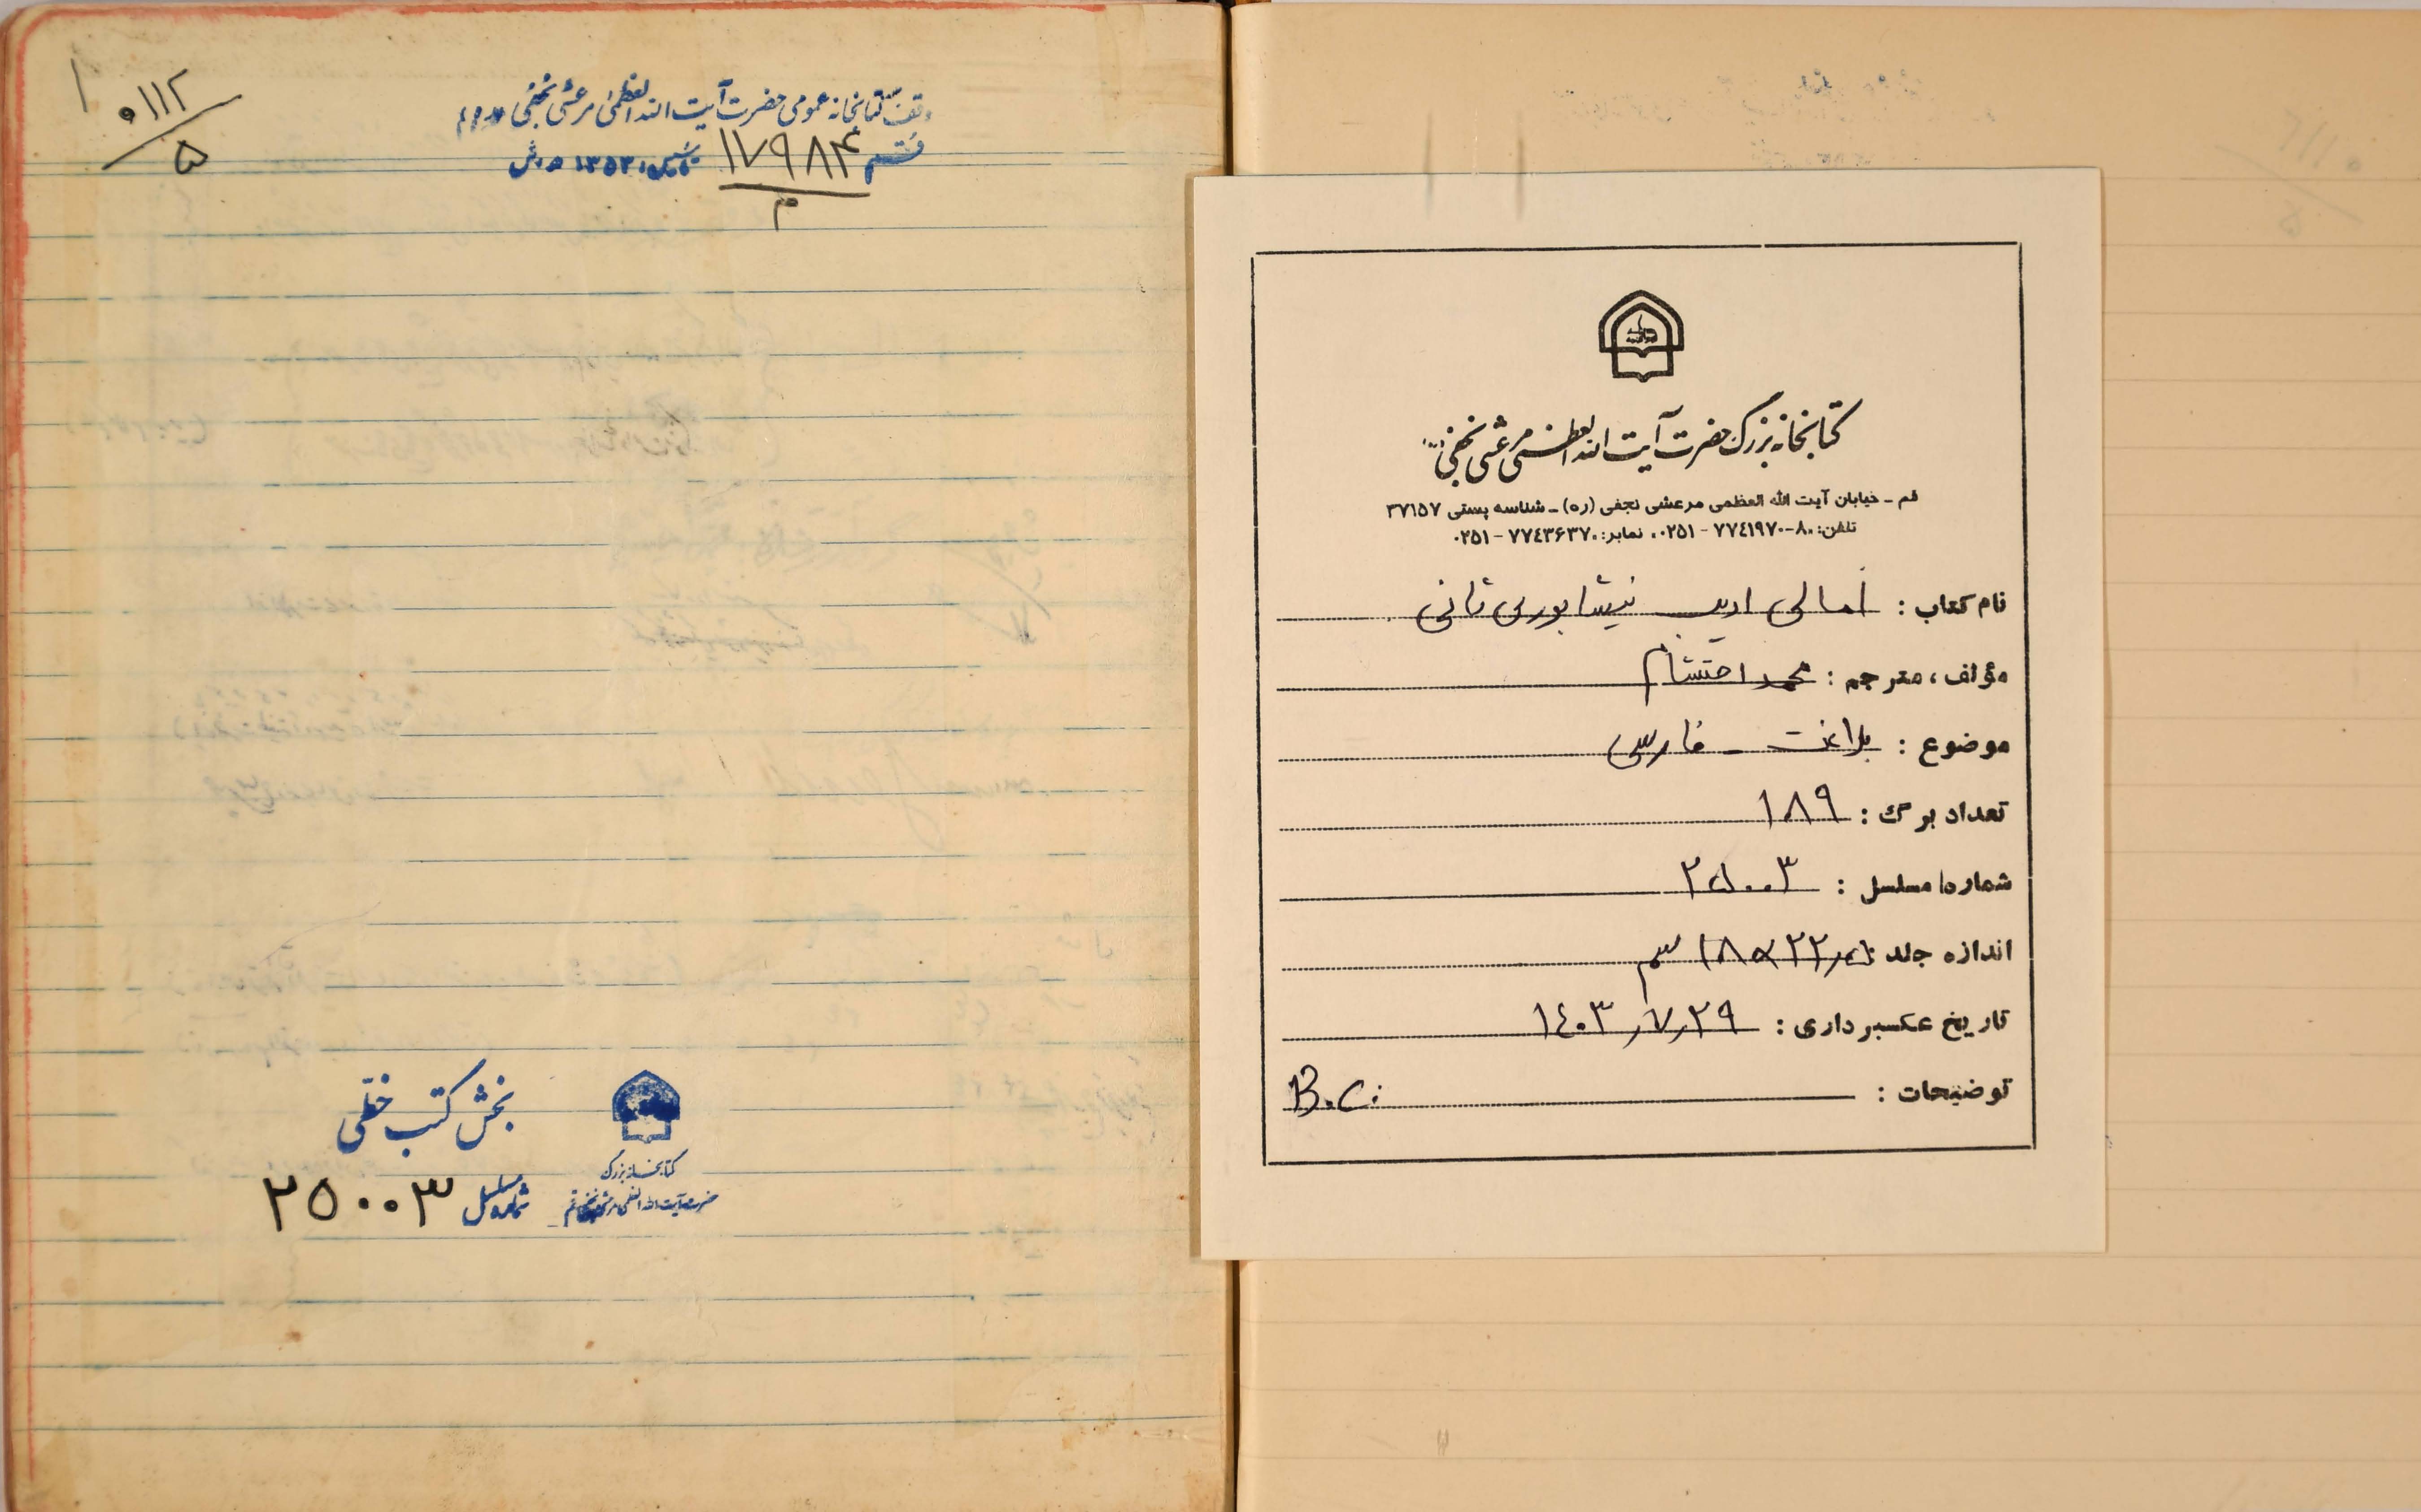 ۰۱۱۲
۵
وقف کتابخانه عمومی حضرت آیت الله العظمی مرعشی نجفی
۱۷۹۸۴
م
تاسیس ۱۳۵۳ ه ش
بخش کتب خطی
شماره مسلسل ۲۵۰۰۳
کتابخانه بزرگ
حضرت آیت الله العظمی مرعشی نجفی قم
کتابخانه بزرگ حضرت آیت الله العظمی مرعشی نجفی
قم - خیابان آیت الله العظمی مرعشی نجفی (ره) - شناسه پستی ۳۷۱۵۷
تلفن: ۸۰-۷۷٤۱۹۷۰ - ۰۲۵۱، نمابر: ۷۷٤۳۶۳۷ - ۰۲۵۱
نام کتاب : امالی ادیب نیشابوری ثانی
مؤلف ، مترجم : محمد احتشام
موضوع : بلاغت - فارسی
تعداد برگ : ۱۸۹
شماره مسلسل : ۲۵۰۰۳
اندازه جلد : ۱۸×۲۲٫۵ سم
تاریخ عکسبرداری : ۱٤۰۳٫۷٫۲۹
توضیحات : B.C.